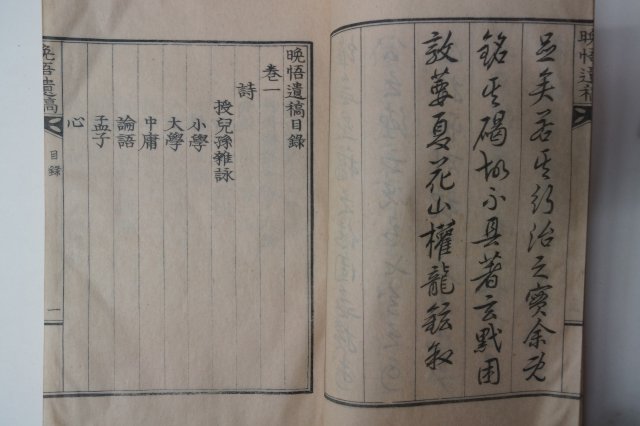 晩悟遺稿
足矣若其行治之實余既
銘其碣故不具著玄黓困
敦蕤夏花山權龍鉉叙
晩悟遺稿目錄
卷一
詩
授兒孫雜詠
小學
大學
中庸
論語
孟子
心
晩悟遺稿
目錄
一